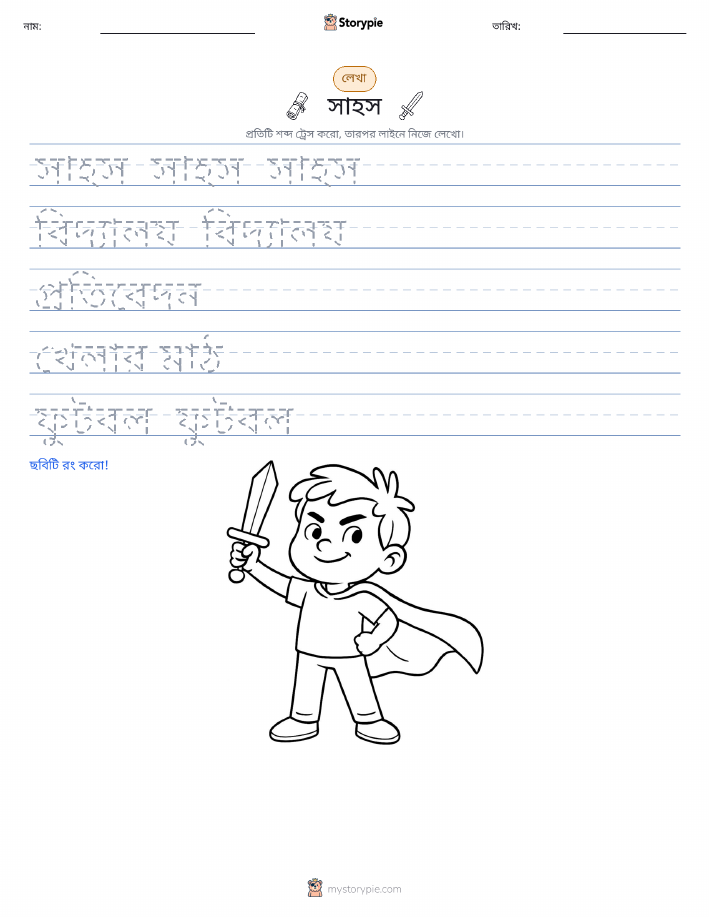 নাম:
Storypie
তারিখ:
লেখা
সাহস
প্রতিটি শব্দ ট্রেস করো, তারপর লাইনে নিজে লেখো।
সাহস সাহস সাহস
বিদ্যালয় বিদ্যালয়
প্রতিবেদন
খেলার মাঠ
ফুটবল ফুটবল
ছবিটি রং করো!
mystorypie.com